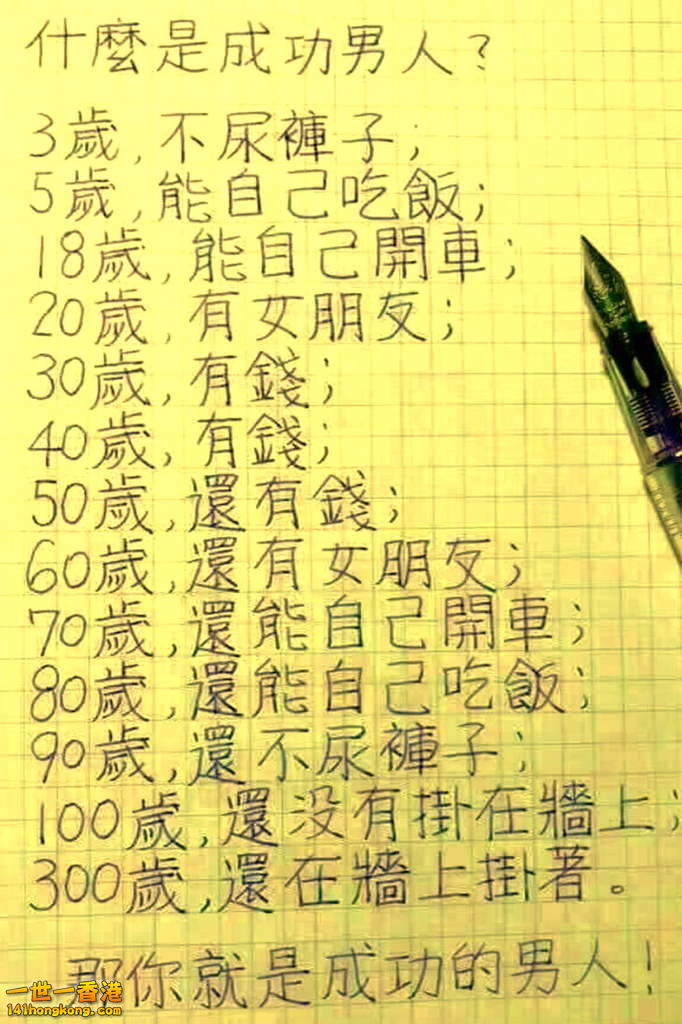 什麼是成功男人?
3歲,不尿褲子;
5歲,能自己吃飯;
18歲,能自己開車;
20歲,有女朋友;
30歲,有錢;
40歲,有錢;
50歲,還有錢;
60歲,還有女朋友;
70歲,還能自己開車;
80歲,還能自己吃飯;
90歲,還不尿褲子;
100歲,還没有掛在牆上;
300歲,還在牆上掛著。
那你就是成功的男人!
一世一香港
141hongkong.com